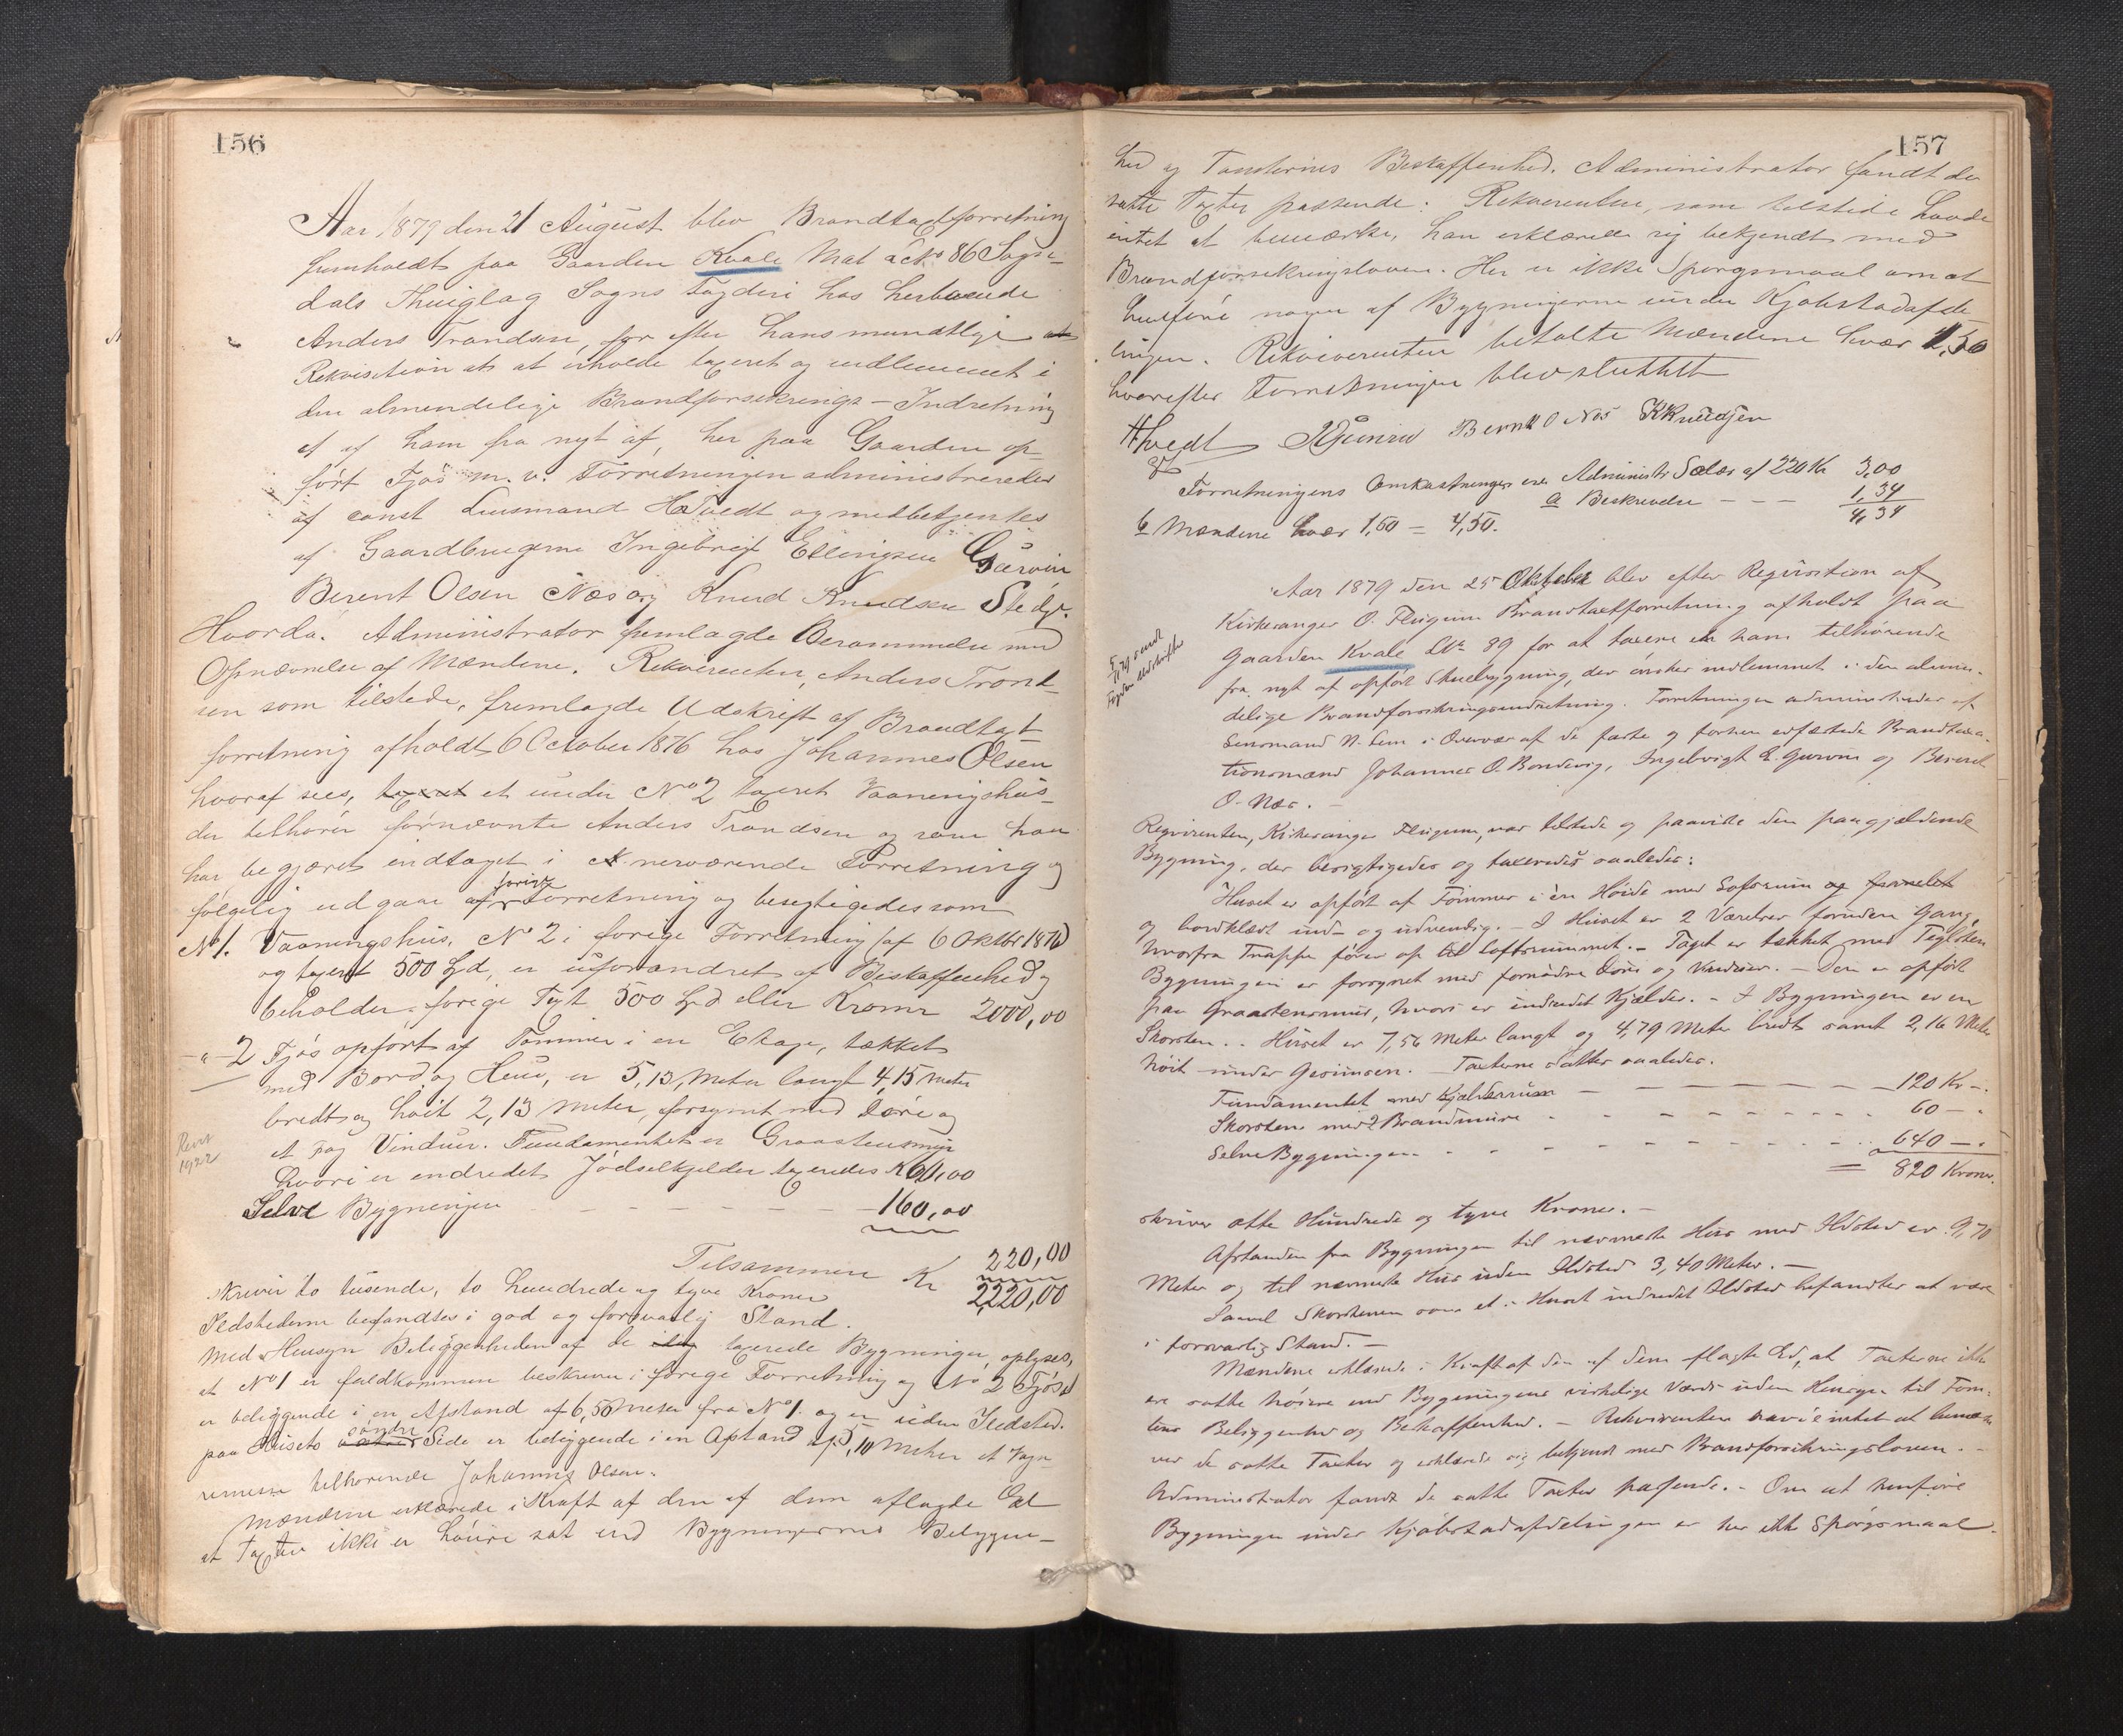 156
Aar 1879 den 21 August blev Brandtaxtforretning
fremholdt paa Gaarden Kvale Mat No 86 Sogn-
dals Thinglag Sogns Fogderi hos herboende
Anders Trondsen for efter hans mundtlige
Rekvisition at erholde taxeret og indlemmet i
den almindelige Brandforsikrings-Indretning
et af ham fra nyt af, her paa Gaarden op-
ført Fjøs m. v. Forretningen administreredes
af const Lensmand HTvedt og medbetjentes
af Gaardbrugerne Ingebrigt Ellingsen Gurvin
Berent Olsen Næs og Knud Knudsen Stedje.
Hvorda. Administrator fremlagde Berammelse med
Opnævnelse af Mændene. Rekvirenten, Anders Trond-
sen som tilstede, fremlagde Udskrift af Brandtaxt
forretning afholdt 6 October 1876 hos Johannes Olsen
hvoraf sees, taxeret et under No 2 taxeret Vaaningshus
der tilhører fornævnte Anders Trondsen og som han
har begjæret indtaget i nerværende Forretning og
følgelig udgaar af forige Forretning og besigtigedes som
No 1. Vaaningshus, No 2 i forige Forretning (af 6 Oktbr 1876)
og taxert 500 Spd, er uforandret af Beskaffenhed og
beholder forige Taxt 500 Spd eller Kroner 2000,00
-"- 2 Fjøs opført af Tømmer i en Etage, tækket
med Bord og Heue, er 5,13, Meter langt 4,15 Meter
bredt og høit 2,13 Meter, forsynet med Døre og
et Fag Vinduer. Fundamentet er Graastensmur
hvori er indredet Jødselkjelder taxeredes K 60,00
Selve Bygningen - - - - - - 160,00
220,00
Tilsammen Kr 2220,00
skriver to tusende, to hundrede og tyve Kroner
Ildstederne befandtes i god og forsvarlig Stand.
Med Hensyn Beliggenheden af de taxerede Bygninger, oplyses,
at No 1 er fuldkommen beskreven i forige Forretning og No 2 Fjøset
er beliggende i en Afstand af 6,50 Meter fra No 1. og er uden Ildsted.
paa Husets søndre Side er beliggende i en Afstand af 3,10 Meter et Vogn-
remisse tilhørende Johannes Olsen.
Mændene erklærede i Kraft af den af dem aflagte Ed
at Taxten ikke er høiere sat end Bygningernes Beliggen-
157
hed og Tomternes Beskaffenhed. Administrator fandt de
satte Taxter passende. Rekvirenten, som tilstede havde
intet at bemærke, han erklærede sig bekjendt med
Brandforsikringsloven. Her er ikke Spørgsmaal om at
henføre nogen af Bygningerne under Kjøbstadafde-
lingen. Rekvirenten betalte Mændene hver 1,50
hvorefter Forretningen blev sluttet
HTvedt IGurvin Bernt O Nes KKnudsen
Forretningens Omkostninger ere Administr Salær af 220 Kr 3,00
a Beskrivelse - - - 1,34
4,34
Mændene hver 1,50 = 4,50.
Aar 1879 den 25 Oktober blev efter Requisition af
Kirkesanger O. Flugum Brandtaxtforretning afholdt paa
Gaarden Kvale LNo 89 for at taxere en ham tilhørende
fra nyt af opført Stuebygning, der ønskes indlemmet i den almin-
delige Brandforsikringsindretning. Forretningen administreredes af
Lensmand N. Lem i Overvær af de faste og forhen edfæstede Brandtaxa-
tionsmænd Johannes O. Bondevig, Ingebrigt E. Gurvin og Berent
O. Næs. -
Reqvirenten, Kirkesanger Flugum, var tilstede og paaviste den paagjældende
Bygning, der besigtigedes og taxeredes saaledes:
Huset er opført af Tømmer i én Høide med Loftsrum og panelet
og bordklædt ind- og udvendig. - I Huset er 2 Værelser foruden Gang,
hvorfra Trappe fører op til Loftsrummet. - Taget er tækket med Teglsten
Bygningen er forsynet med fornødne Døre og Vinduer. - Den er opført
paa Graastensmur, hvori er indredet Kjælder. - I Bygningen er en
Skorsten. - Huset er 7,56 Meter langt og 4,79 Meter bredt samt 2,16 Meter
høit under Gesimsen. - Taxterne sattes saaledes.
Fundamentet med Kjælderrum - - - - - 120 Kr -.
Skorsten med 2 Brandmure - - - - - 60 - .
Selve Bygningen - - - - - 640 - .
= 820 Kroner.
skriver otte Hundrede og tyve Kroner. -
Afstanden fra Bygningen til nærmeste Hus med Ildsted er 9,70
Meter og til nærmeste Hus uden Ildsted 3,40 Meter. -
Saavel Skorstenen som et i Huset indredet Ildsted befandtes at være
i forsvarlig Stand. -
Mændene erklærede i Kraft af den af dem aflagte Ed, at Taxterne ikke
ere satte høiere end Bygningens virkelige Værdi uden Hensyn til Tom-
tens Beliggenhed og Beskaffenhed. - Rekvirenten havde intet at bemærke
ved de satte Taxter og erklærede sig bekjendt med Brandforsikringsloven. -
Administrator fandt de satte Taxter passende. - Om at henføre
Bygningen under Kjøbstadafdelingen er her ikke Spørgsmaal.